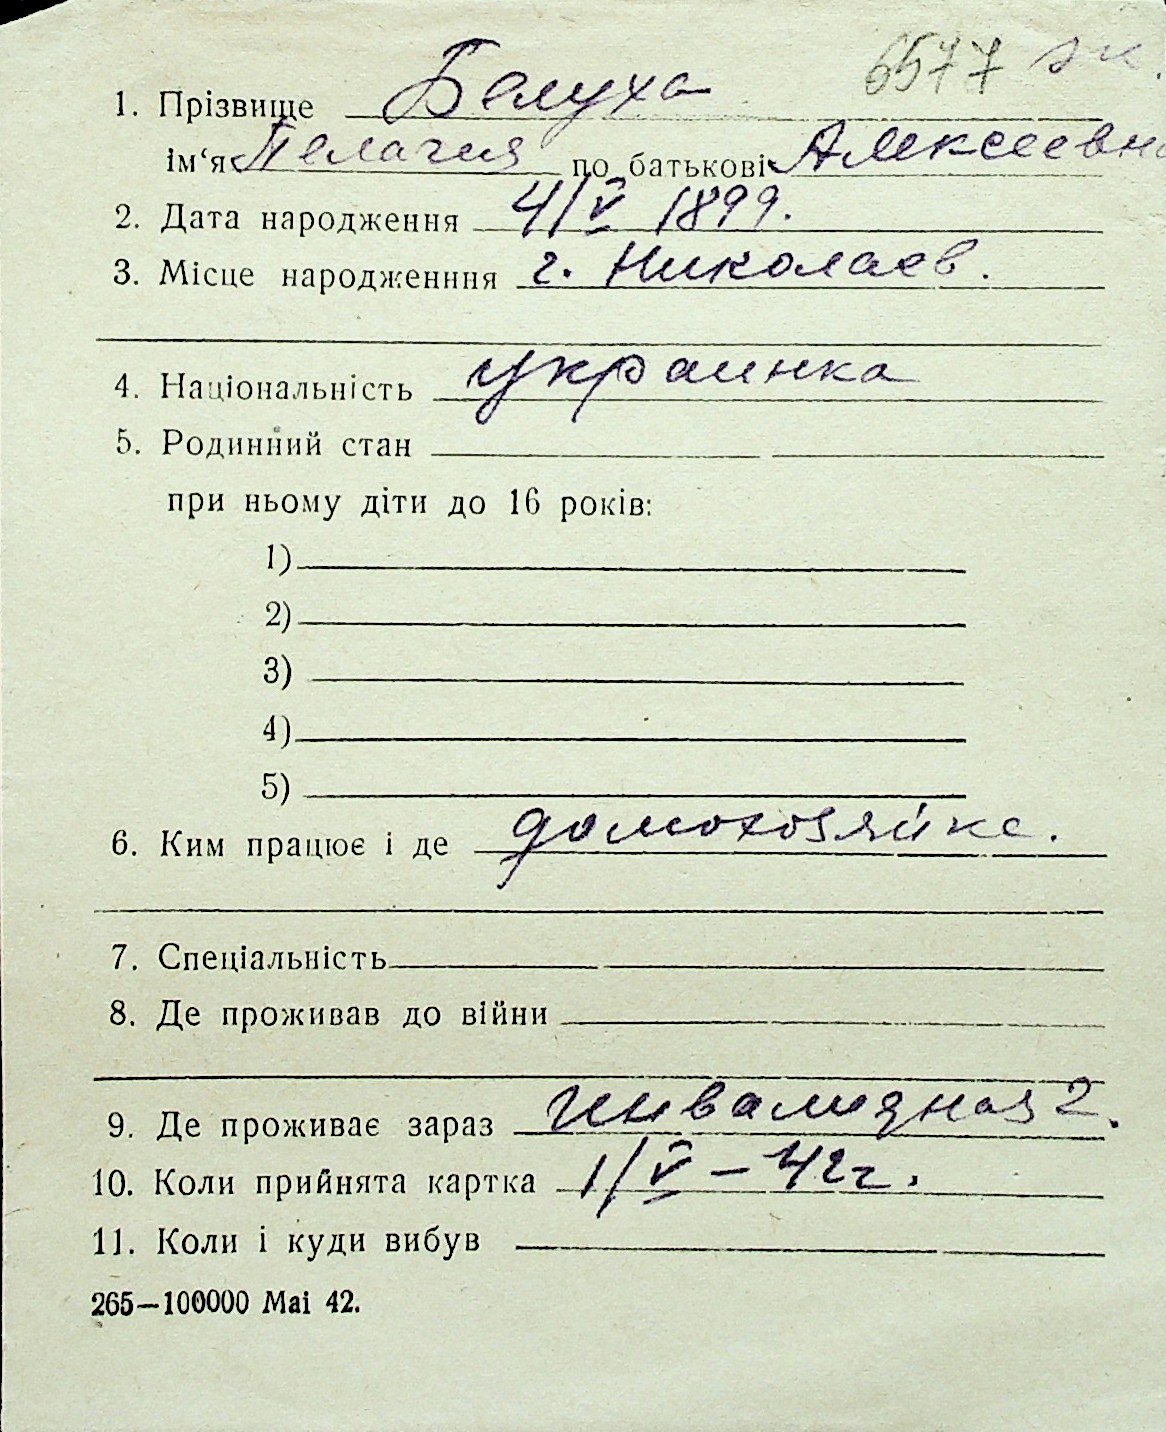 6577 эк.
1. Прізвище Белуха
ім‘я Пелагея по батькові Алексеевна
2. Дата народження 4/V 1899.
3. Місце народженння г. Николаев.
4. Національність украинка
5. Родинний стан
при ньому діти до 16 років:
1)
2)
3)
4)
5)
6. Ким працює і де домохозяйка.
7. Спеціальність
8. Де проживав до війни
9. Де проживає зараз Инвалидная 2.
10. Коли прийнята картка 1/V – 42г.
11. Коли і куди вибув
265—100000 Mai 42.